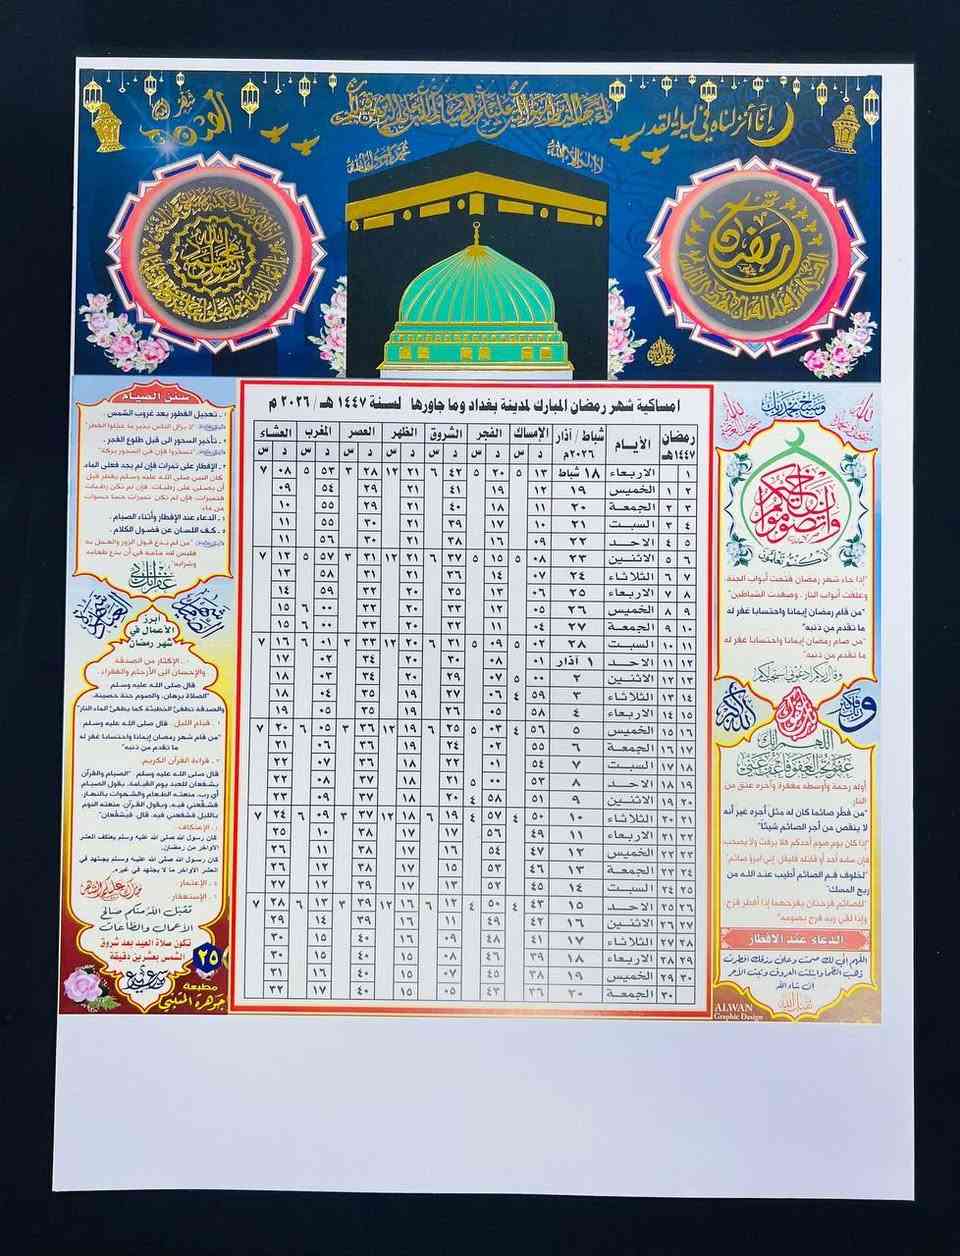 إنا أنزلناه في ليلة القدر
رمضان
محمد رسول الله
امساكية شهر رمضان المبارك لمدينة بغداد وما جاورها لسنة ١٤٤٧ هـ / ٢٠٢٦ م
رمضان ١٤٤٧هـ الأيام شباط / آذار ٢٠٢٦م الإمساك الفجر الشروق الظهر العصر المغرب العشاء
د س د س د س د س د س د س د س
١ الاربعاء ١٨ شباط ١٣ ٥ ٢٠ ٥ ٤٢ ٦ ٢١ ١٢ ٢٨ ٣ ٥٣ ٥ ٠٨ ٧
٢ ١ الخميس ١٩ ١٢ ١٩ ٤١ ٢١ ٢٩ ٥٤ ٠٩
٣ ٢ الجمعة ٢٠ ١١ ١٨ ٤٠ ٢١ ٢٩ ٥٥ ١٠
٤ ٣ السبت ٢١ ١٠ ١٧ ٣٩ ٢١ ٣٠ ٥٥ ١١
٥ ٤ الاحد ٢٢ ٠٩ ١٦ ٣٨ ٢١ ٣٠ ٥٦ ١١
٦ ٥ الاثنين ٢٣ ٠٨ ٥ ١٥ ٥ ٣٧ ٦ ٢١ ١٢ ٣١ ٣ ٥٧ ٥ ١٣ ٧
٧ ٦ الثلاثاء ٢٤ ٠٧ ١٤ ٣٦ ٢١ ٣١ ٥٨ ١٣
٨ ٧ الاربعاء ٢٥ ٠٦ ١٣ ٣٥ ٢٠ ٣٢ ٥٩ ١٤
٩ ٨ الخميس ٢٦ ٠٥ ١٢ ٣٣ ٢٠ ٣٢ ٠٠ ٦ ١٥
١٠ ٩ الجمعة ٢٧ ٠٤ ١١ ٣٢ ٢٠ ٣٣ ٠٠ ٦ ١٥
١١ ١٠ السبت ٢٨ ٠٢ ٥ ٠٩ ٥ ٣١ ٦ ٢٠ ١٢ ٣٣ ٣ ٠١ ٦ ١٦ ٧
١٢ ١١ الاحد ١ آذار ٠١ ٠٨ ٣٠ ٢٠ ٣٤ ٠٢ ١٧
١٣ ١٢ الاثنين ٢ ٠٠ ٥ ٠٧ ٢٩ ٢٠ ٣٤ ٠٣ ١٨
١٤ ١٣ الثلاثاء ٣ ٥٩ ٤ ٠٦ ٢٧ ١٩ ٣٥ ٠٤ ١٨
١٥ ١٤ الاربعاء ٤ ٥٨ ٠٥ ٢٦ ١٩ ٣٥ ٠٥ ١٩
١٦ ١٥ الخميس ٥ ٥٦ ٤ ٠٣ ٥ ٢٥ ٦ ١٩ ١٢ ٣٦ ٣ ٠٥ ٦ ٢٠ ٧
١٧ ١٦ الجمعة ٦ ٥٥ ٠٢ ٢٤ ١٩ ٣٦ ٠٦ ٢١
١٨ ١٧ السبت ٧ ٥٤ ٠١ ٢٢ ١٨ ٣٦ ٠٧ ٢٢
١٩ ١٨ الاحد ٨ ٥٣ ٠٠ ٥ ٢١ ١٨ ٣٧ ٠٨ ٢٢
٢٠ ١٩ الاثنين ٩ ٥١ ٥٨ ٤ ٢٠ ١٨ ٣٧ ٠٩ ٢٣
٢١ ٢٠ الثلاثاء ١٠ ٥٠ ٤ ٥٧ ٤ ١٩ ٦ ١٨ ١٢ ٣٧ ٣ ٠٩ ٦ ٢٤ ٧
٢٢ ٢١ الاربعاء ١١ ٤٩ ٥٦ ١٧ ١٧ ٣٨ ١٠ ٢٥
٢٣ ٢٢ الخميس ١٢ ٤٧ ٥٤ ١٦ ١٧ ٣٨ ١١ ٢٦
٢٤ ٢٣ الجمعة ١٣ ٤٦ ٥٣ ١٥ ١٧ ٣٨ ١٢ ٢٦
٢٥ ٢٤ السبت ١٤ ٤٥ ٥٢ ١٣ ١٧ ٣٩ ١٢ ٢٧
٢٦ ٢٥ الاحد ١٥ ٤٣ ٤ ٥٠ ٤ ١٢ ٦ ١٦ ١٢ ٣٩ ٣ ١٣ ٦ ٢٨ ٧
٢٧ ٢٦ الاثنين ١٦ ٤٢ ٤٩ ١١ ١٦ ٣٩ ١٤ ٢٩
٢٨ ٢٧ الثلاثاء ١٧ ٤١ ٤٨ ٠٩ ١٦ ٤٠ ١٥ ٣٠
٢٩ ٢٨ الاربعاء ١٨ ٣٩ ٤٦ ٠٨ ١٥ ٤٠ ١٥ ٣٠
٣٠ ٢٩ الخميس ١٩ ٣٨ ٤٥ ٠٧ ١٥ ٤٠ ١٦ ٣١
٣٠ الجمعة ٢٠ ٣٦ ٤٣ ٠٥ ١٥ ٤٠ ١٧ ٣٢
وأن تصوموا خير لكم
إن كنتم تعلمون
"إذا جاء شهر رمضان فتحت أبواب الجنة،
وغلقت أبواب النار، وصفدت الشياطين"
"من قام رمضان إيمانا واحتسابا غفر له
ما تقدم من ذنبه"
"من صام رمضان إيمانا واحتسابا غفر له
ما تقدم من ذنبه"
وقال ربكم ادعوني استجب لكم
الله أكبر
اللهم إنك
عفو تحب العفو فاعف عني
أوله رحمة وأوسطه مغفرة وآخره عتق من
النار
"من فطّر صائما كان له مثل أجره غير أنه
لا ينقص من أجر الصائم شيئا"
"إذا كان يوم صوم أحدكم فلا يرفث ولا يصخب
فإن سابه أحد أو قاتله فليقل إني امرؤ صائم"
"لخلوف فم الصائم أطيب عند الله من
ريح المسك"
"للصائم فرحتان يفرحهما إذا أفطر فرح
وإذا لقي ربه فرح بصومه"
الدعاء عند الافطار
اللهم إني لك صمت وعلى رزقك افطرت
ذهب الظمأ وابتلت العروق وثبت الأجر
إن شاء الله
ALWAN
Graphic Design
سنن الصيام
١ـ تعجيل الفطور بعد غروب الشمس
"لا يزال الناس بخير ما عجلوا الفطر"
٢ـ تأخير السحور الى قبل طلوع الفجر.
"تسحروا فإن في السحور بركة"
٣ـ الإفطار على تمرات فإن لم يجد فعلى الماء
كان النبي صلى الله عليه وسلم يفطر قبل
أن يصلي على رطبات، فإن لم تكن رطبات
فتميرات، فإن لم تكن تميرات حسا حسوات
من ماء
٤ـ الدعاء عند الإفطار وأثناء الصيام.
٥ـ كف اللسان عن فضول الكلام.
"من لم يدع قول الزور والعمل به
فليس لله حاجة في أن يدع طعامه
وشرابه"
أبرز
الأعمال في
شهر رمضان
١ـ الإكثار من الصدقة
والإحسان الى الأرحام والفقراء.
قال صلى الله عليه وسلم
"الصلاة برهان، والصوم جنة حصينة،
والصدقة تطفئ الخطيئة كما يطفئ الماء النار"
٢ـ قيام الليل. قال صلى الله عليه وسلم
"من قام شهر رمضان إيمانا واحتسابا غفر له
ما تقدم من ذنبه"
٣ـ قراءة القرآن الكريم.
قال صلى الله عليه وسلم "الصيام والقرآن
يشفعان للعبد يوم القيامة، يقول الصيام
أي رب، منعته الطعام والشهوات بالنهار،
فشفّعني فيه، ويقول القرآن: منعته النوم
بالليل فشفعني فيه، قال فيشفعان"
٤ـ الإعتكاف.
كان رسول الله صلى الله عليه وسلم يعتكف العشر
الأواخر من رمضان.
كان رسول الله صلى الله عليه وسلم يجتهد في
العشر الأواخر ما لا يجتهد في غيره.
٥ـ الإعتمار.
٦ـ الإستغفار.
مبارك عليكم الشهر
تقبل الله منكم صالح
الأعمال والطاعات
تكون صلاة العيد بعد شروق
الشمس بعشرين دقيقة
٢٥
مطبعة
جوهرة المتنبي